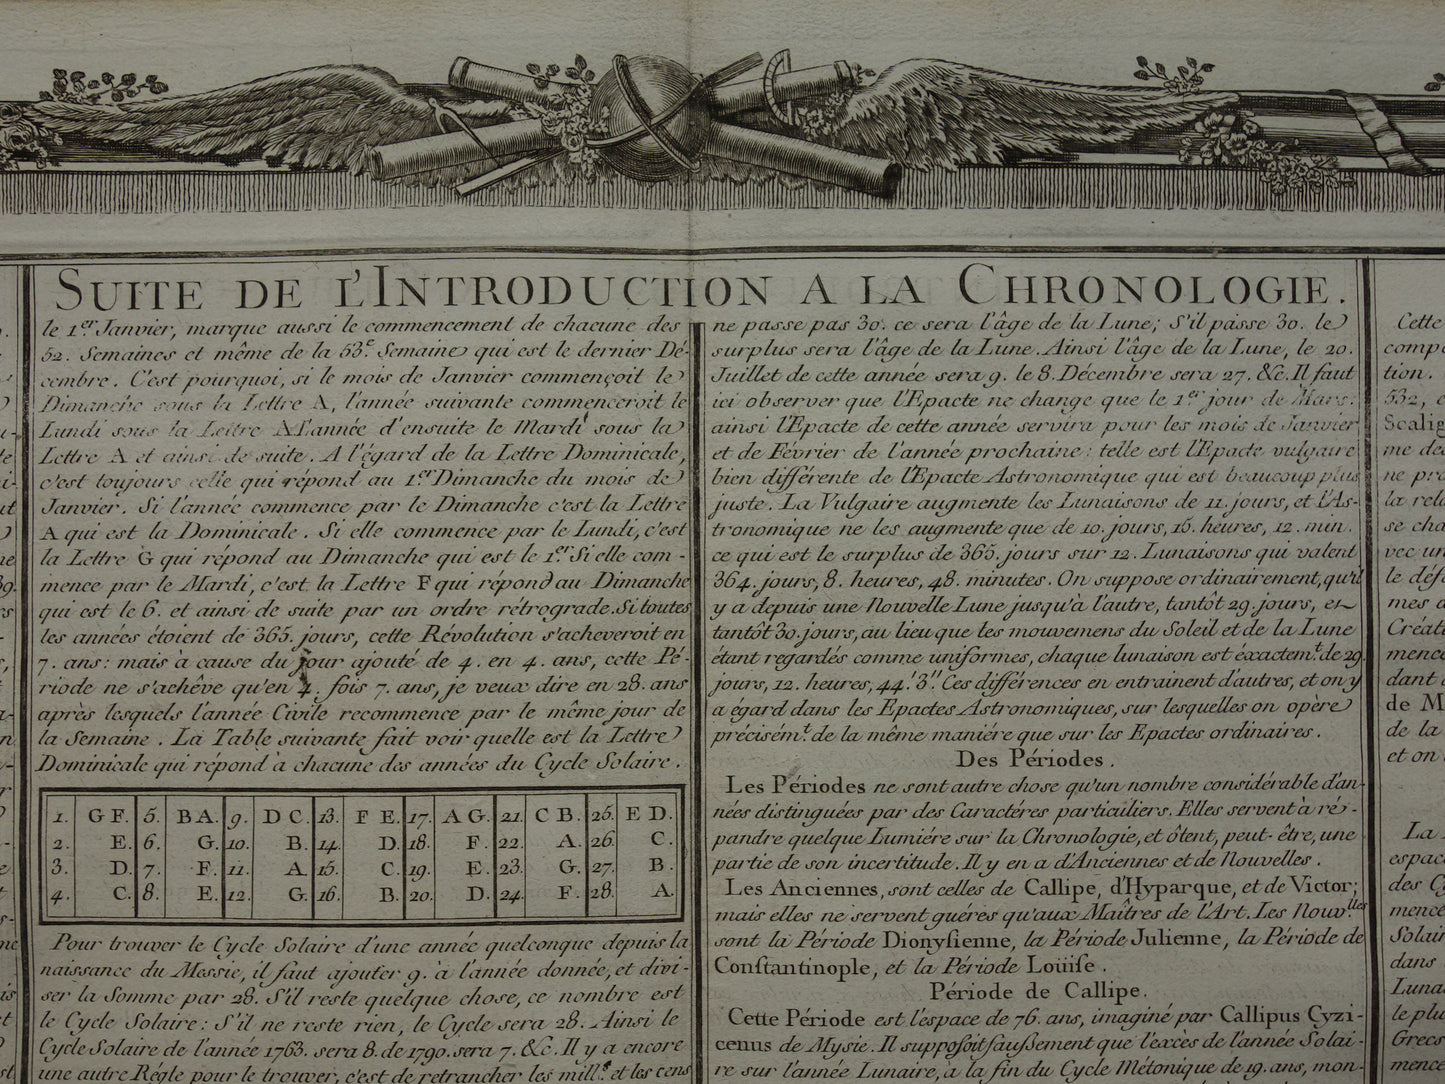 SUITE DE L'INTRODUCTION A LA CHRONOLOGIE.
le 1.er Janvier, marque aussi le commencement de chacune des
52. Semaines et même de la 53.e Semaine qui est le dernier Dé-
cembre. C'est pourquoi, si le mois de Janvier commençoit le
Dimanche sous la Lettre A, l'année suivante commenceroit le
Lundi sous la Lettre A. L'année d'ensuite le Mardi sous la
Lettre A et ainsi de suite. A l'égard de la Lettre Dominicale,
c'est toujours celle qui répond au 1.er Dimanche du mois de
Janvier. Si l'année commence par le Dimanche c'est la Lettre
A qui est la Dominicale. Si elle commence par le Lundi, c'est
la Lettre G qui répond au Dimanche qui est le 1.er Si elle com-
mence par le Mardi, c'est la Lettre F qui répond au Dimanche
qui est le 6. et ainsi de suite par un ordre rétrograde. Si toutes
les années étoient de 365. jours, cette Révolution s'acheveroit en
7. ans: mais à cause du jour ajouté de 4. en 4. ans, cette Pé-
riode ne s'achêve qu'en 4. fois 7. ans, je veux dire en 28. ans
après lesquels l'année Civile recommence par le même jour de
la Semaine. La Table suivante fait voir quelle est la Lettre
Dominicale qui répond à chacune des années du Cycle Solaire.
1. G F. 5. B A. 9. D C. 13. F E. 17. A G. 21. C B. 25. E D.
2. E. 6. G. 10. B. 14. D. 18. F. 22. A. 26. C.
3. D. 7. F. 11. A. 15. C. 19. E. 23. G. 27. B.
4. C. 8. E. 12. G. 16. B. 20. D. 24. F. 28. A.
Pour trouver le Cycle Solaire d'une année quelconque depuis la
naissance du Messie, il faut ajouter 9. à l'année donnée, et divi-
ser la Somme par 28. S'il reste quelque chose, ce nombre est
le Cycle Solaire: S'il ne reste rien, le Cycle sera 28. Ainsi le
Cycle Solaire de l'année 1763. sera 8. de 1790. sera 7. &c. Il y a encore
une autre Régle pour le trouver, c'est de retrancher les mill.s et les cens
ne passe pas 30. ce sera l'âge de la Lune; S'il passe 30. le
surplus sera l'âge de la Lune. Ainsi l'âge de la Lune, le 20.
Juillet de cette année sera 9. le 8. Décembre sera 27. &c. Il faut
ici observer que l'Epacte ne change que le 1.er jour de Mars:
ainsi l'Epacte de cette année servira pour les mois de Janvier
et de Février de l'année prochaine: telle est l'Epacte vulgaire
bien différente de l'Epacte Astronomique qui est beaucoup plus
juste. La Vulgaire augmente les Lunaisons de 11. jours, et l'As-
tronomique ne les augmente que de 10. jours, 15. heures, 12. min.
ce qui est le surplus de 365. jours sur 12. Lunaisons qui valent
364. jours, 8. heures, 48. minutes. On suppose ordinairement, qu'il
y a depuis une Nouvelle Lune jusqu'à l'autre, tantôt 29. jours, et
tantôt 30. jours, au lieu que les mouvemens du Soleil et de la Lune
étant regardés comme uniformes, chaque lunaison est éxactem.t de 29.
jours, 12. heures, 44.' 3." Ces différences en entrainent d'autres, et on y
a égard dans les Epactes Astronomiques, sur lesquelles on opère
précisém.t de la même maniére que sur les Epactes ordinaires.
Des Périodes.
Les Périodes ne sont autre chose qu'un nombre considérable d'an-
nées distinguées par des Caractéres particuliers. Elles servent à ré-
pandre quelque Lumiére sur la Chronologie, et ôtent, peut-être, une
partie de son incertitude. Il y en a d'Anciennes et de Nouvelles.
Les Anciennes, sont celles de Callipe, d'Hyparque, et de Victor;
mais elles ne servent guéres qu'aux Maîtres de l'Art. Les Nouv.lles
sont la Période Dionyſienne, la Période Julienne, la Période de
Conſtantinople, et la Période Loüiſe.
Période de Callipe.
Cette Période est l'espace de 76. ans, imaginé par Callipus Cyzi-
cenus de Mysie. Il suppoſoit fauſſement que l'excès de l'année Solai-
re sur l'année Lunaire, à la fin du Cycle Métonique de 19. ans, mon-
Cette
compo
tion.
532, e
Scalig
me des
ne pre
la rel
se cha
vec un
le défa
mes a
Créati
mence
dant
de M
de la
et on
La
espac
des Cy
mence
Solair
dans
Luna
le plu
Grecs
mence